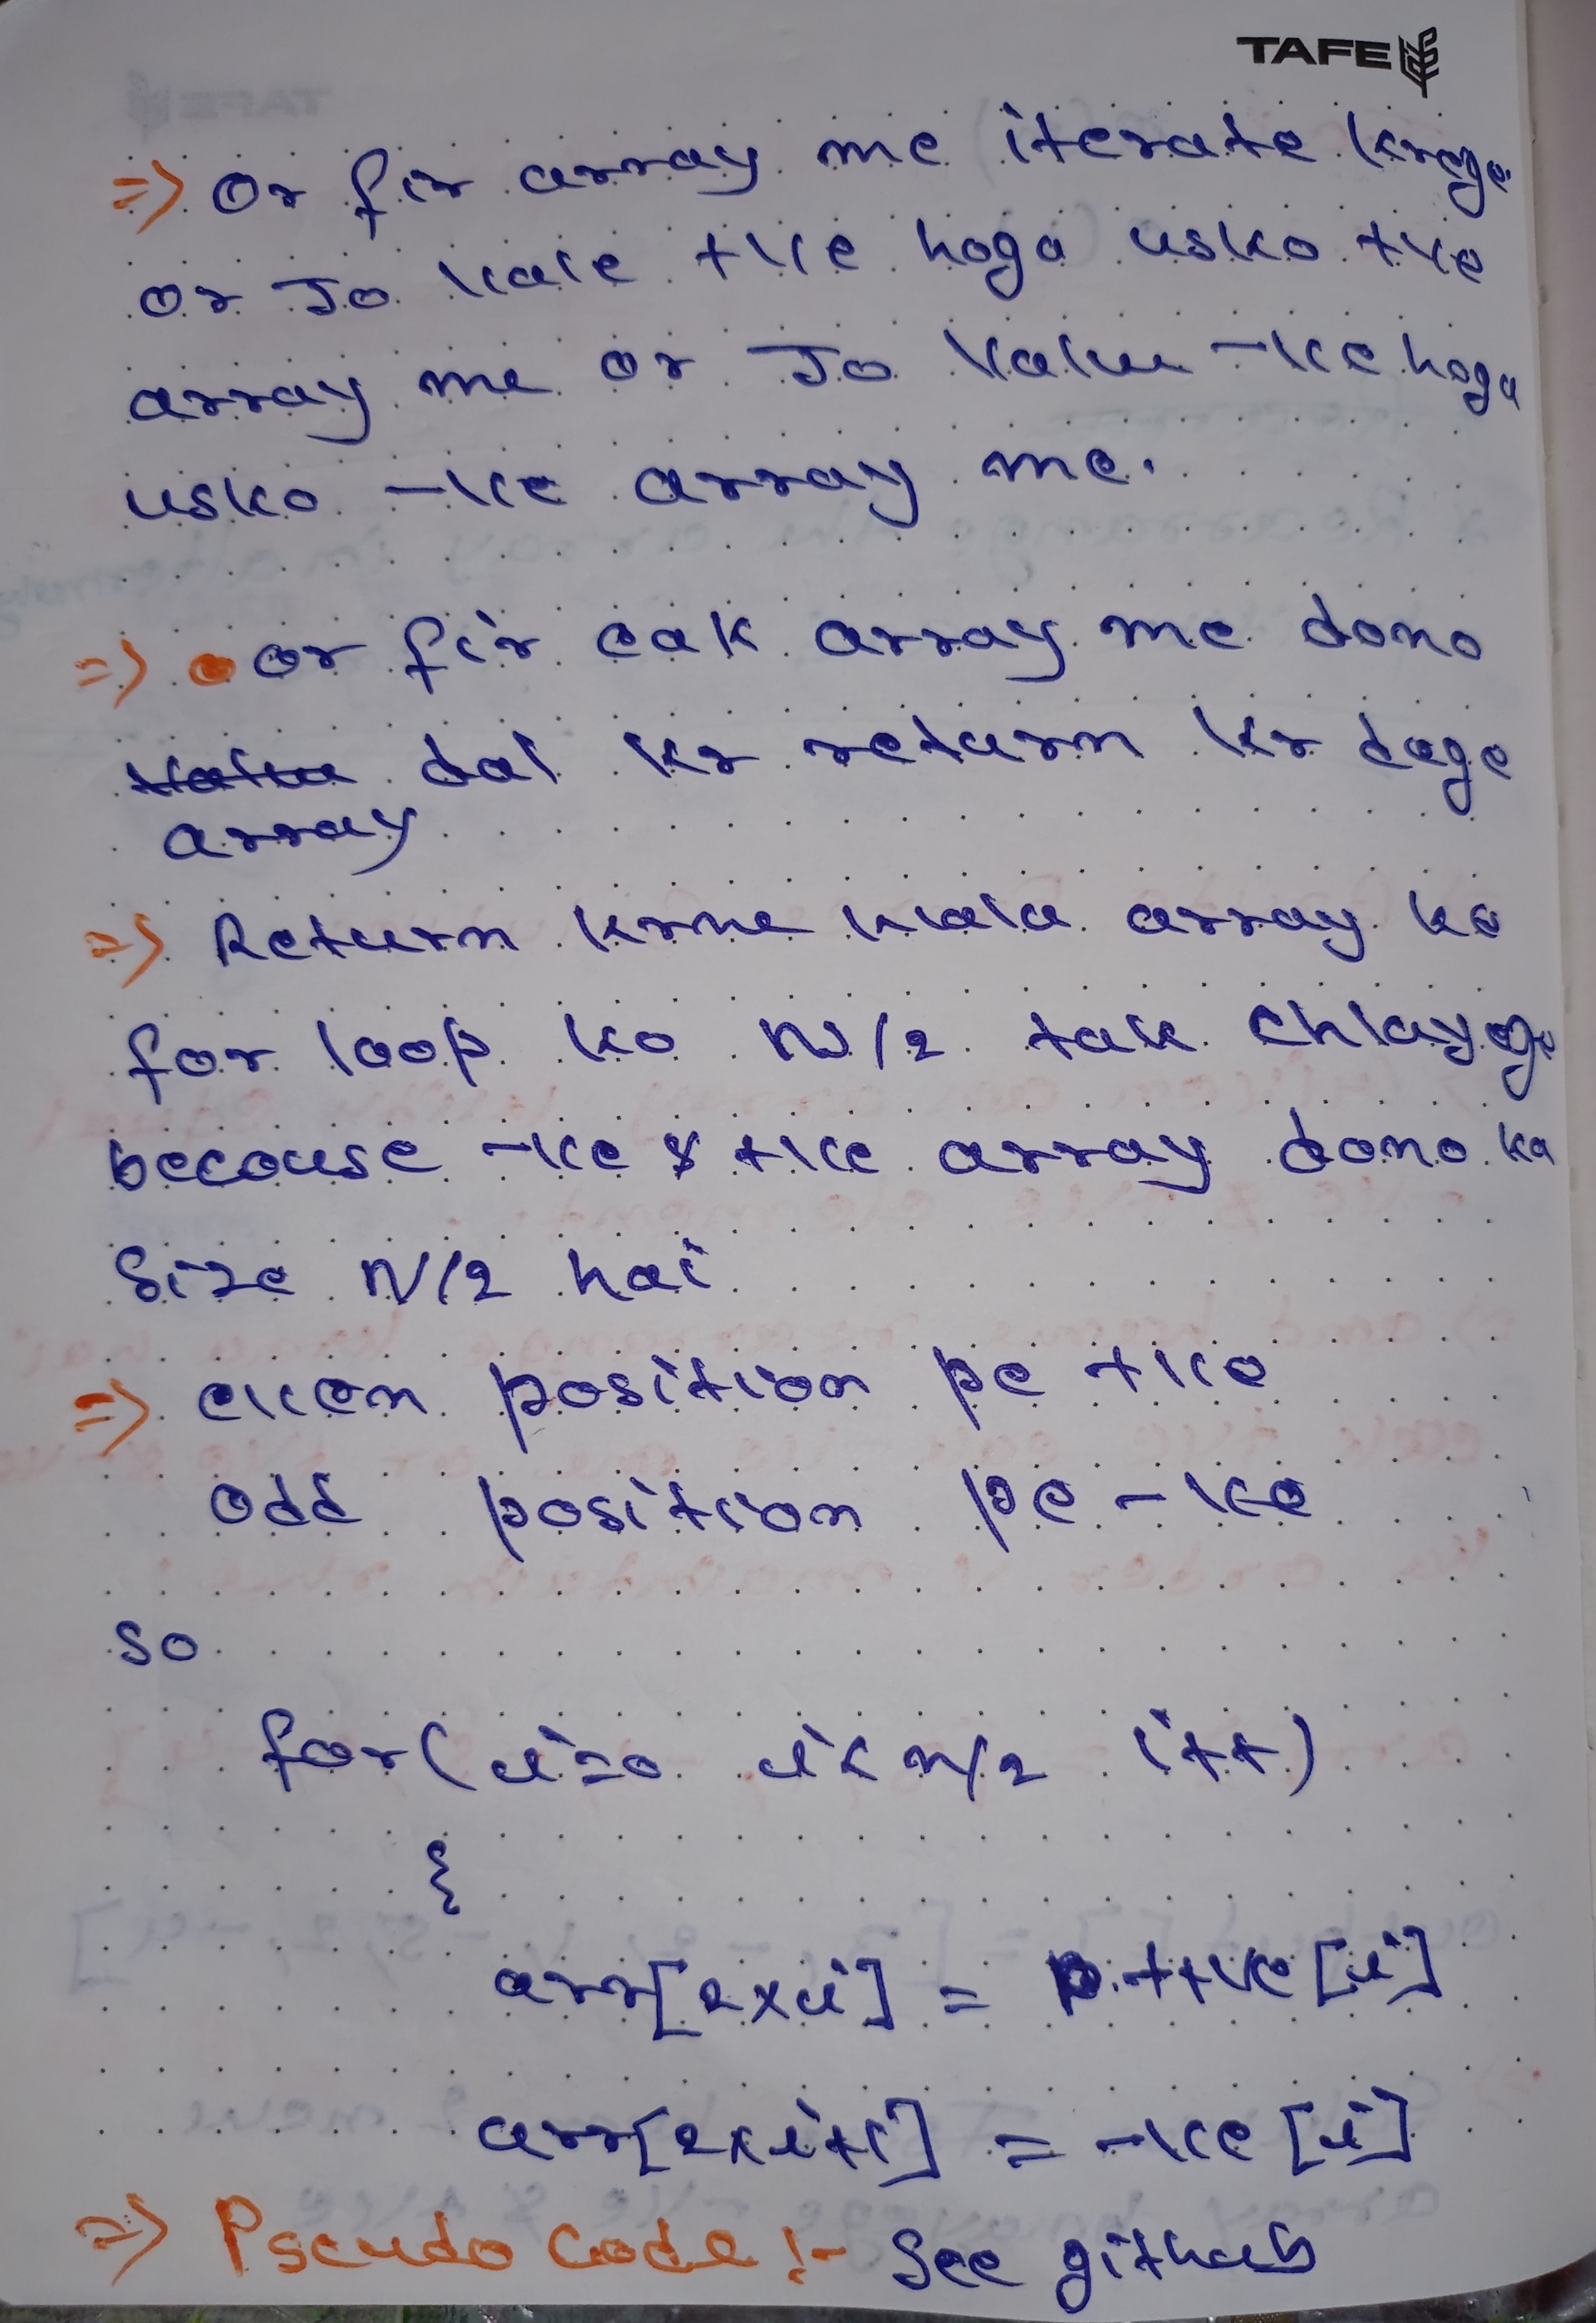 TAFE
=> Or fir array me iterate krege
or Jo vale +ve hoga usko +ve
array me or Jo Value -ve hoga
usko -ve array me.
=> or fir eak array me dono
dal kr return kr dege
array
=> Return krne wala array ko
for loop ko N/2 tak chlayege
becouse -ve & +ve array dono ka
Size N/2 hai
=> even position pe +ve
odd position pe -ve
so
for( i=0 i< n/2 i++)
{
arr[2xi] = +ve[i]
arr[2xi+1] = -ve[i]
=> Pseudo Code :- See github